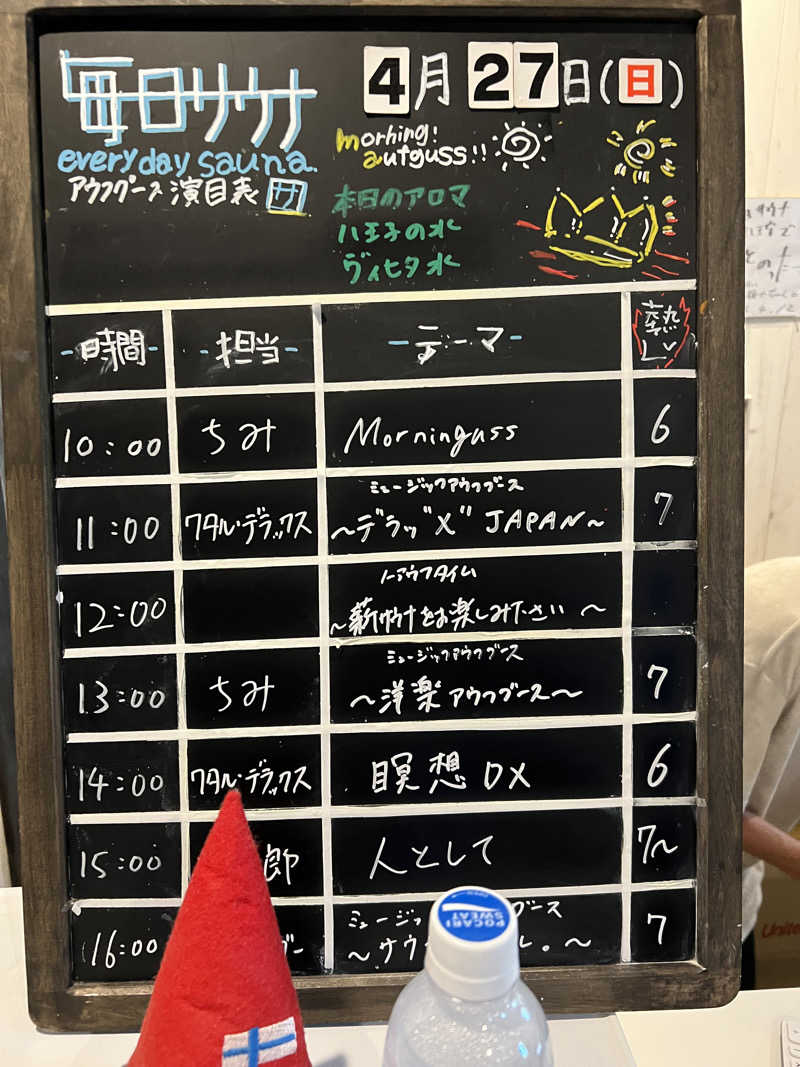 毎日サウナ
everyday sauna.
アウフグース演目表 サ
4月27日(日)
morning!
autguss!!
本日のアロマ
八王子の水
ヴィヒタ水
時間 担当 テーマ 熱レベ
10:00 ちみ Morninguss 6
ミュージックアウフグース
11:00 ワタル・デラックス ~デラッ"X" JAPAN~ 7
ノーアウフタイム
12:00 ~薪サウナをお楽しみ下さい ~
ミュージックアウフグース
13:00 ちみ ~洋楽アウフグース~ 7
14:00 ワタル・デラックス 瞑想DX 6
15:00 郎 人として 7~
ミュージッ グース
16:00 ~サウ 。~ 7
POCARI
SWEAT